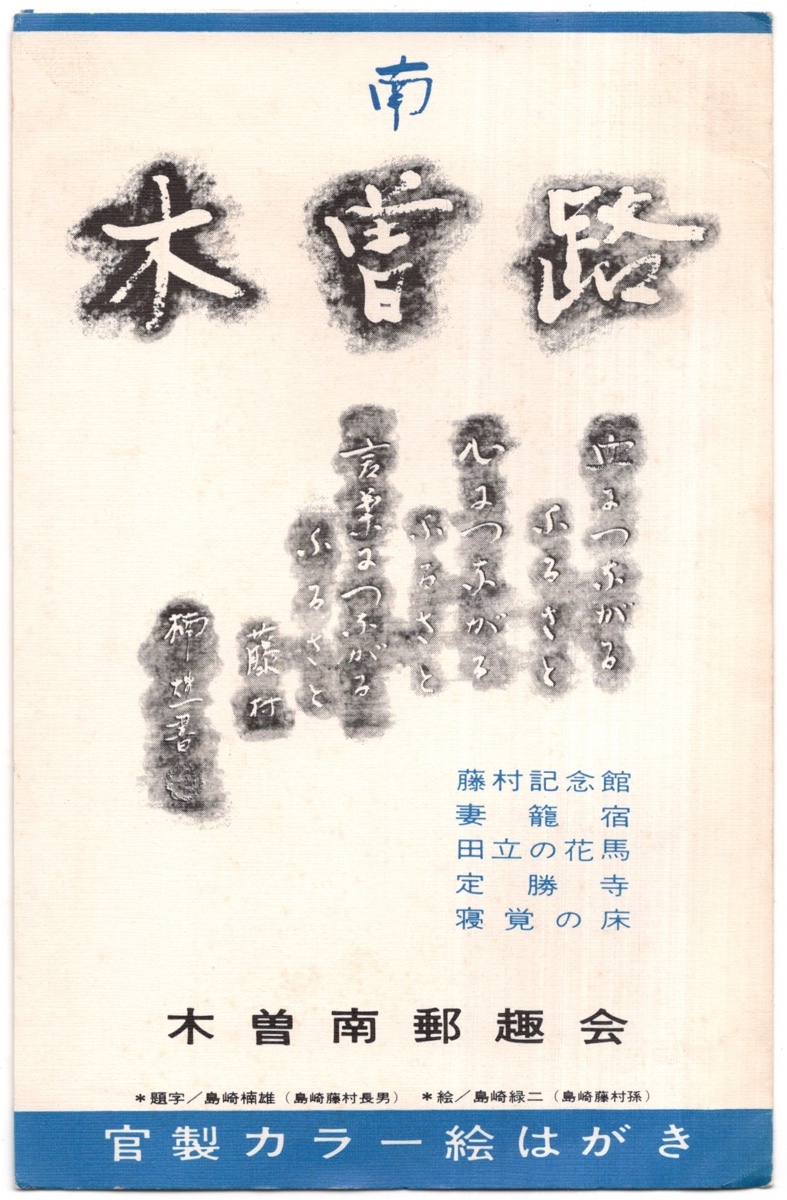 南
木曽路
血につながる
ふるさと
心につながる
ふるさと
言葉につながる
ふるさと
藤村
楠雄書
藤村記念館
妻籠宿
田立の花馬
定勝寺
寝覚の床
木曽南郵趣会
*題字/島崎楠雄(島崎藤村長男) *絵/島崎緑二(島崎藤村孫)
官製カラー絵はがき